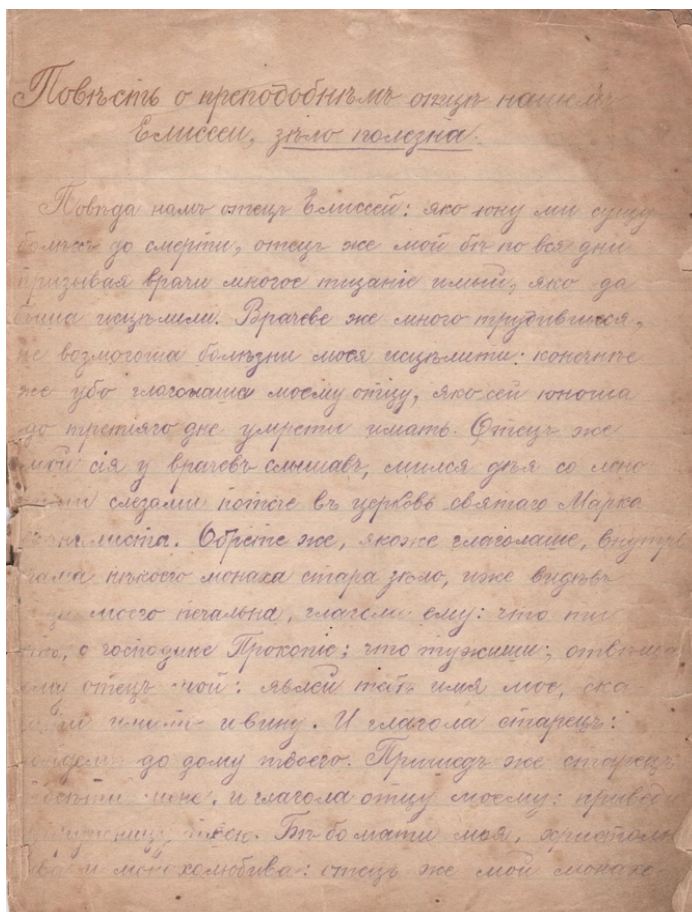 Повѣсть о преподобнѣмъ отцѣ нашемъ
Елиссеи, зѣло полезна.
Повѣда намъ отецъ Елиссей: яко юну ми сущу
болѣхъ до смерти, отецъ же мой бѣ по вся дни
призывая врачи многое тщаніе имый, яко да
быша исцѣлили. Врачеве же много трудившися,
не возмогоша болѣзни моея исцѣлити: конечнѣе
же убо глаголаша моему отцу, яко сей юноша
до третіяго дне умрети имать. Отецъ же
мой сія у врачевъ слышавъ, мился дѣя со мно
слезами потече въ церковь святаго Марка
Обрѣте же, якоже глаголаше, внутрь
храма нѣкоего монаха стара зѣло, иже видѣвъ
моего печальна, глагола ему: что ти
о господине Прокопіе; что тужиши; отвѣща
ему отецъ мой: явлей тебѣ имя мое, ска
и вину. И глагола старецъ:
пойдемъ до дому твоего. Пришедъ же старецъ
посѣти мене. и глагола отцу моему: приведи
Бѣ бо мати моя, христолю
бива и монахолюбива: отецъ же мой монахо